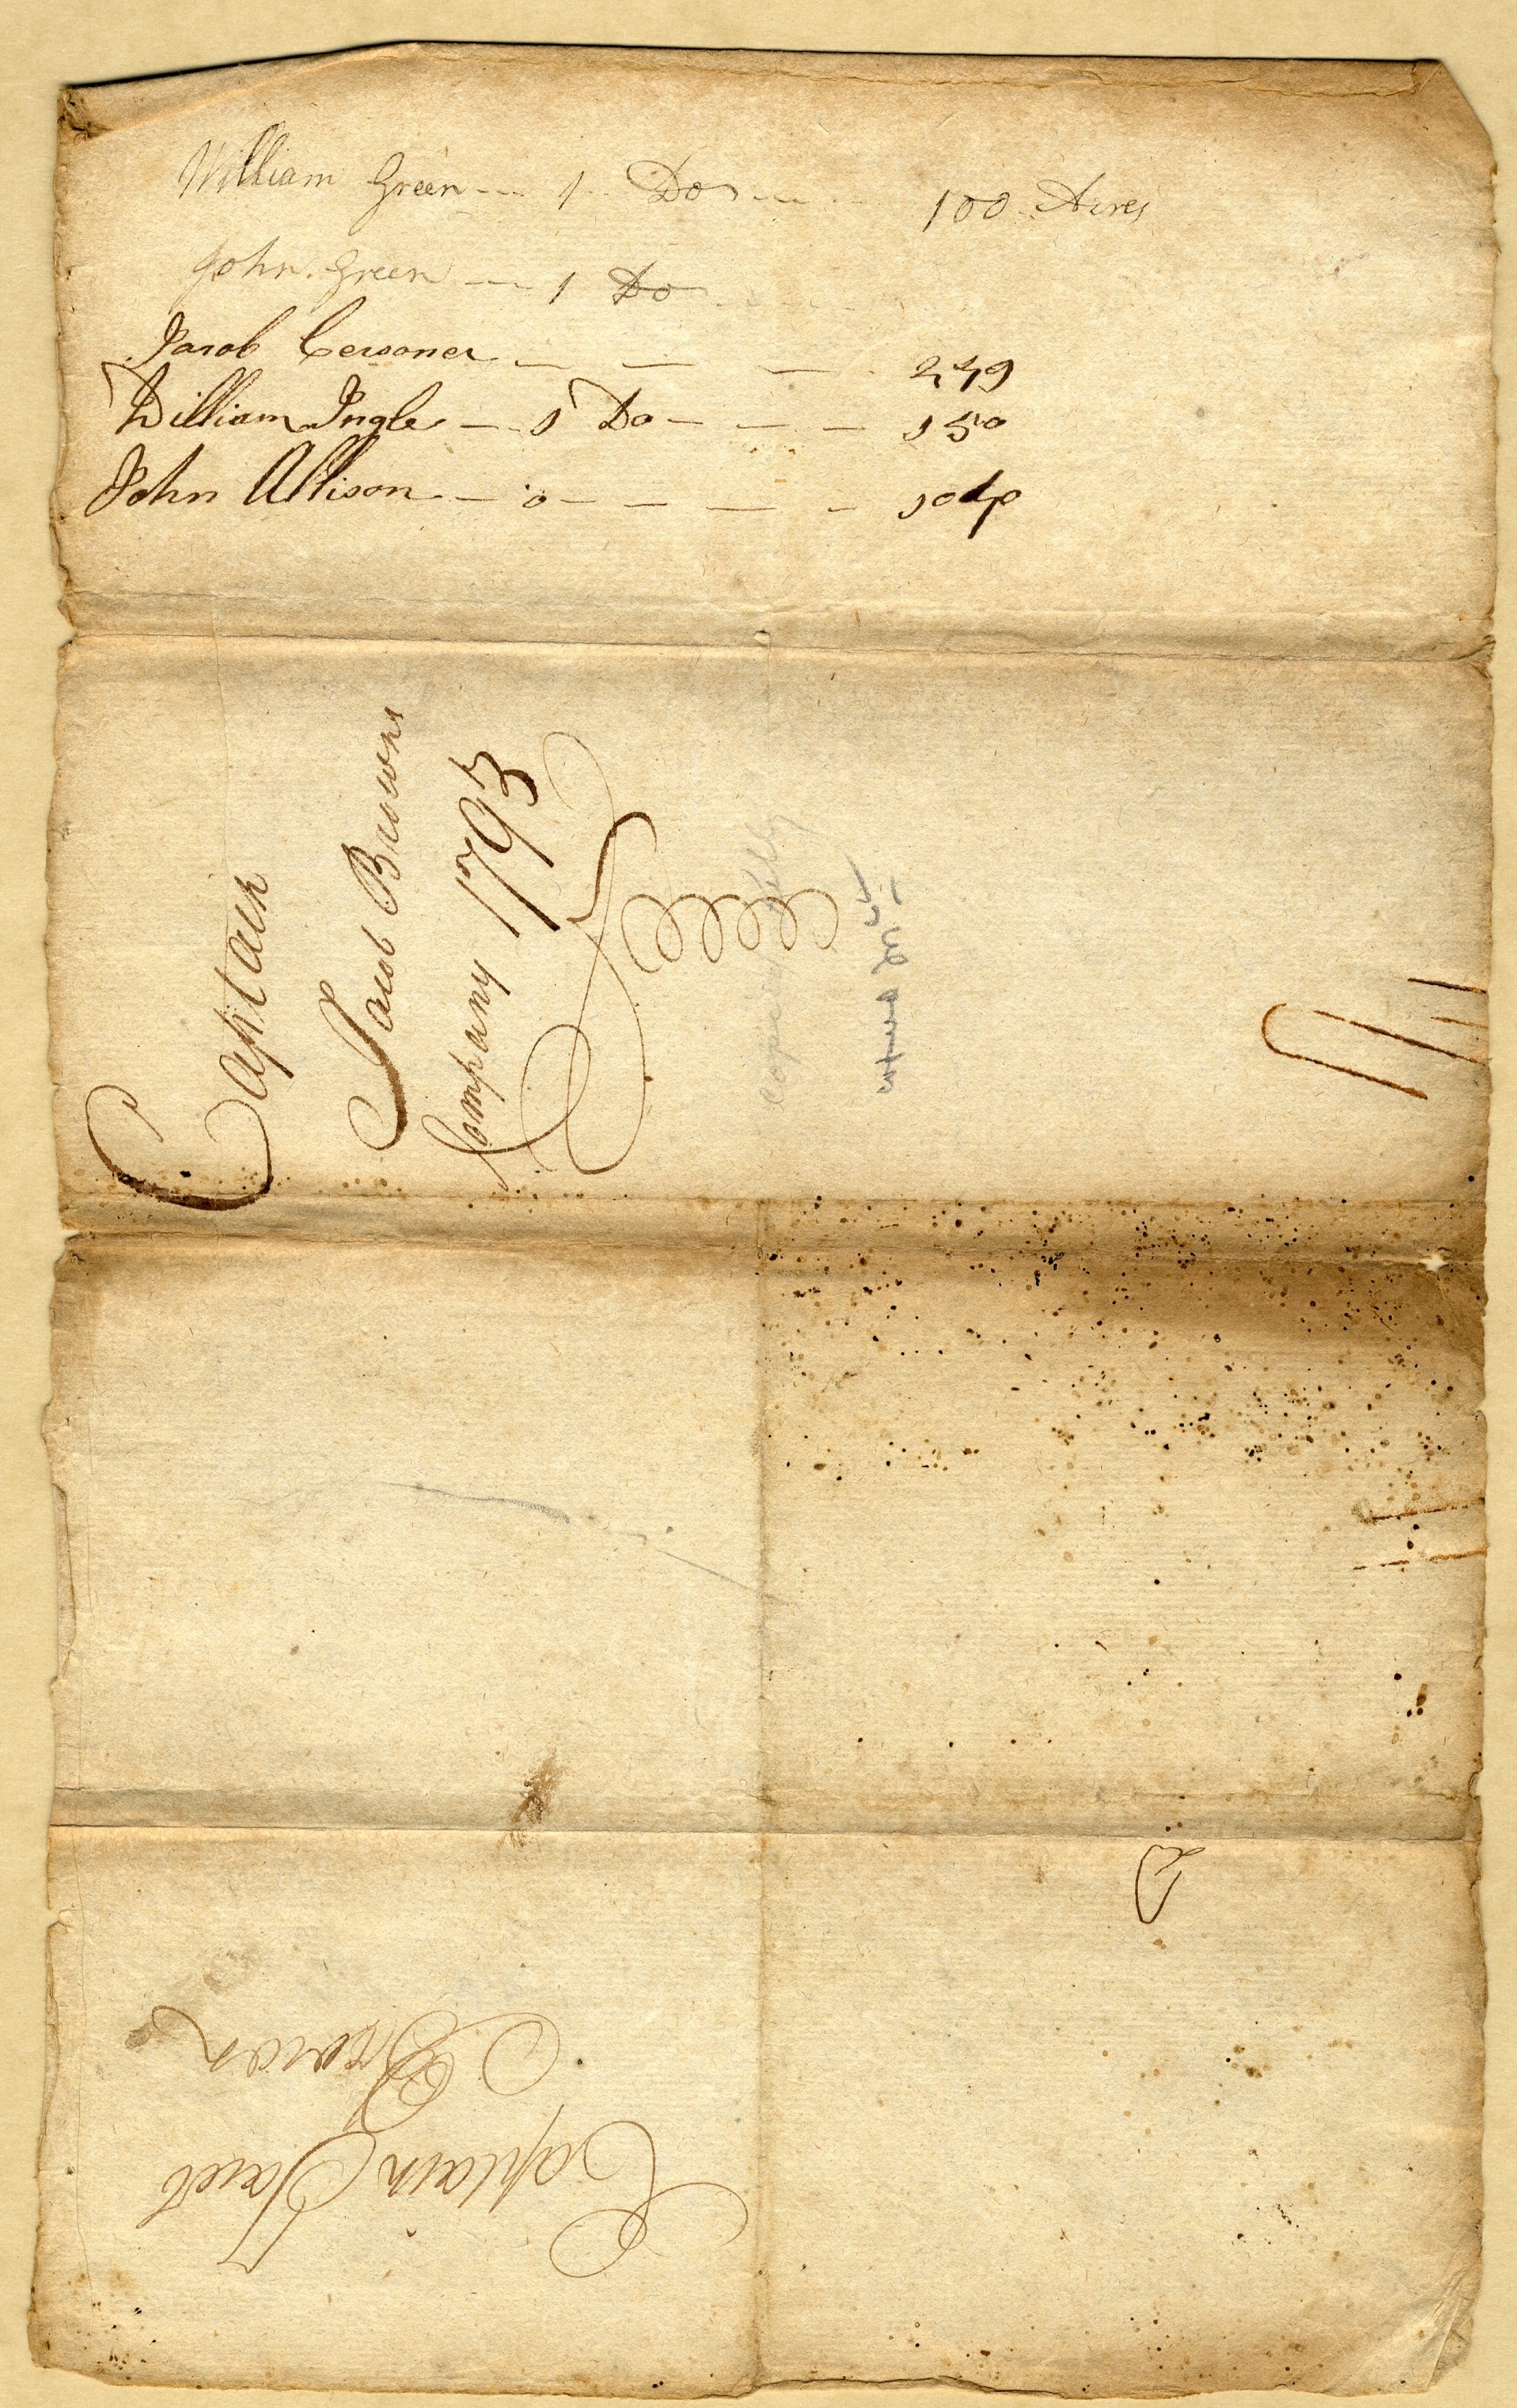 William Green --- 1 -- Do --- 100 Acres
John Green --- 1 Do
Jacob Cersoner — — — 249
William Ingle — 1 Do — — — 150
John Allison — 0 — — — — 104
Captain
Jacob Browns
Company 1793
Copied
Captain Jacob
Brown